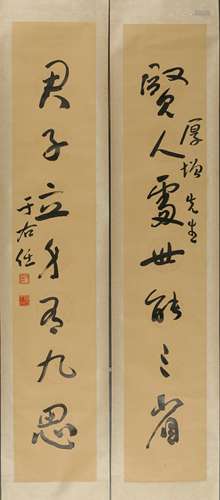 賢人處世能三省
厚增先生
君子立身有九思
于右任